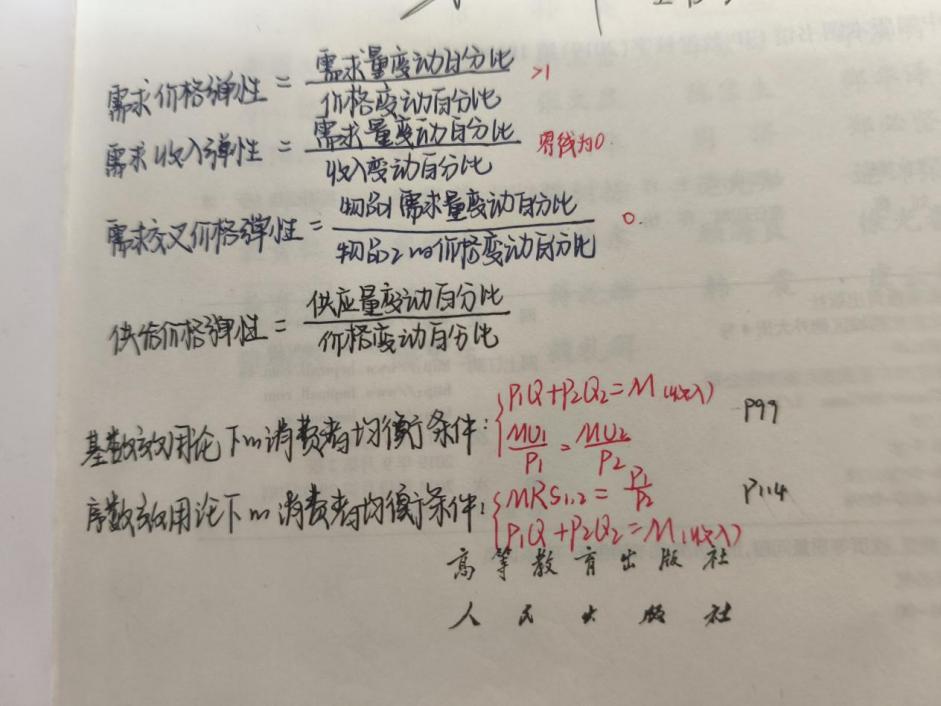 需求价格弹性 = 需求量变动百分比 / 价格变动百分比 >1
需求收入弹性 = 需求量变动百分比 / 收入变动百分比 界线为0.
需求交叉价格弹性 = 物品1需求量变动百分比 / 物品2的价格变动百分比 0.
供给价格弹性 = 供应量变动百分比 / 价格变动百分比
基数效用论下的消费者均衡条件: { P₁Q+P₂Q₂=M(收入) P99
MU₁/P₁ = MU₂/P₂
序数效用论下的消费者均衡条件: { MRS₁,₂ = P₁/P₂ P114
P₁Q+P₂Q₂=M(收入)
高等教育出版社
人民出版社